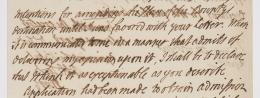 intentions for arranging the Plan of the County
until I was favored with your Letter. When
it is communicated to me in a manner that admits of
delivering my opinion upon it, I shall be
that I think it as exceptionable as you describe
Application had been made to obtain admission